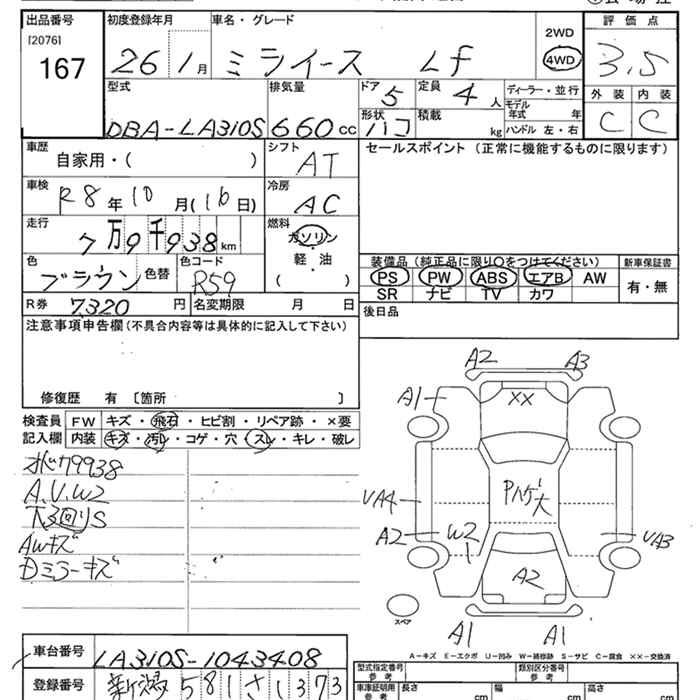 出品番号 初度登録年月 車名・グレード 評価点
[2076]
167 26 1月 ミライース Lf 2WD 4WD 3.5
外装 内装
C C
型式 排気量 ドア 定員 ディーラー・並行
DBA-LA310S 660cc 5 4人 モデル年式 年
形状 積載 ハンドル 左・右
ハコ kg
車歴 シフト セールスポイント (正常に機能するものに限ります)
自家用・( ) AT
車検 冷房
R8年10月(16日) AC
走行 燃料
7万9千938km ガソリン・軽・油
( )
色 色替 色コード
ブラウン R59
装備品 (純正品に限り〇をつけてください) 新車保証書
PS PW ABS エアB AW 有・無
SR ナビ TV カワ
R券 7320円 名変期限 月 日
後日品
注意事項申告欄 (不具合内容等は具体的に記入して下さい)
修復歴 有 〔箇所 〕
検査員 FW キズ・飛石・ヒビ割・リペア跡・×要
記入欄 内装 キズ・汚レ・コゲ・穴・スレ・キレ・破レ
79938
A.V.W2
下廻りS
AWキズ
Dミラーキズ
A2 A3
A1 XX
Pハゲ大
VA4
A2 W2 VA3
A2
スペア
A1 A1
A-キズ E-エクボ U-凹み W-補修跡 S-サビ C-腐食 XX-交換済
車台番号 LA310S-1043408
登録番号 新潟 581さ1373
型式指定番号 参考 類別区分番号 参考
車庫証明用 参考 長さ cm 幅 cm 高さ cm